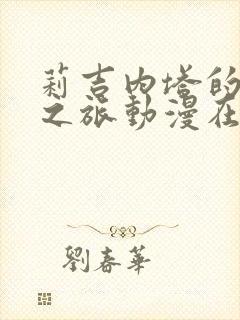 莉吉內塔的
之旅動漫在
劉春華